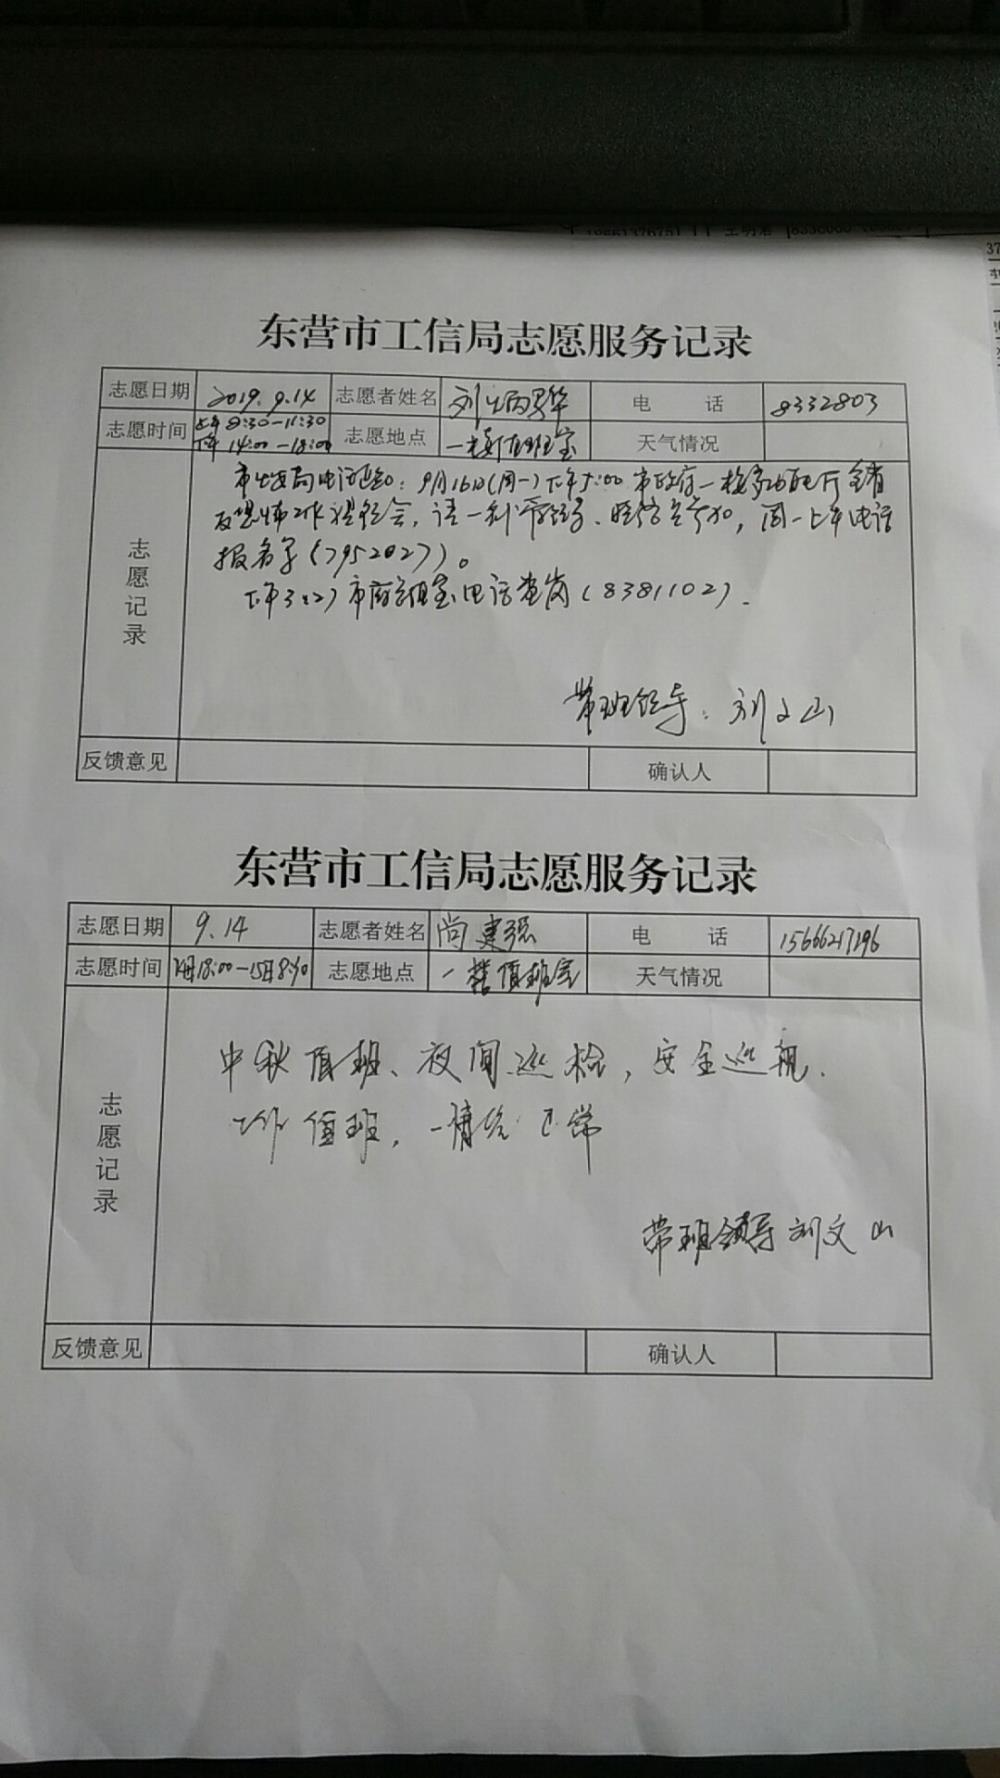 东营市工信局志愿服务记录
志愿日期 2019.9.14 志愿者姓名 刘 电话 8332803
志愿时间 上午 8:30-11:30 下午 14:00-18:00 志愿地点 一楼值班室 天气情况
志愿记录
电话通知：9月16日(周一)下午5:00 市政府一楼 全省
会，请一科 参加，周一上午电话
报名字(7952027)。
下午3:27市府值班室电话查岗(8381102).
带班领导：刘文山
反馈意见 确认人
东营市工信局志愿服务记录
志愿日期 9.14 志愿者姓名 尚建强 电话 15666217196
志愿时间 14日18:00-15日8:30 志愿地点 一楼值班室 天气情况
志愿记录
中秋值班、夜间巡检，安全巡视.
工作值班，一情况正常
带班领导 刘文山
反馈意见 确认人